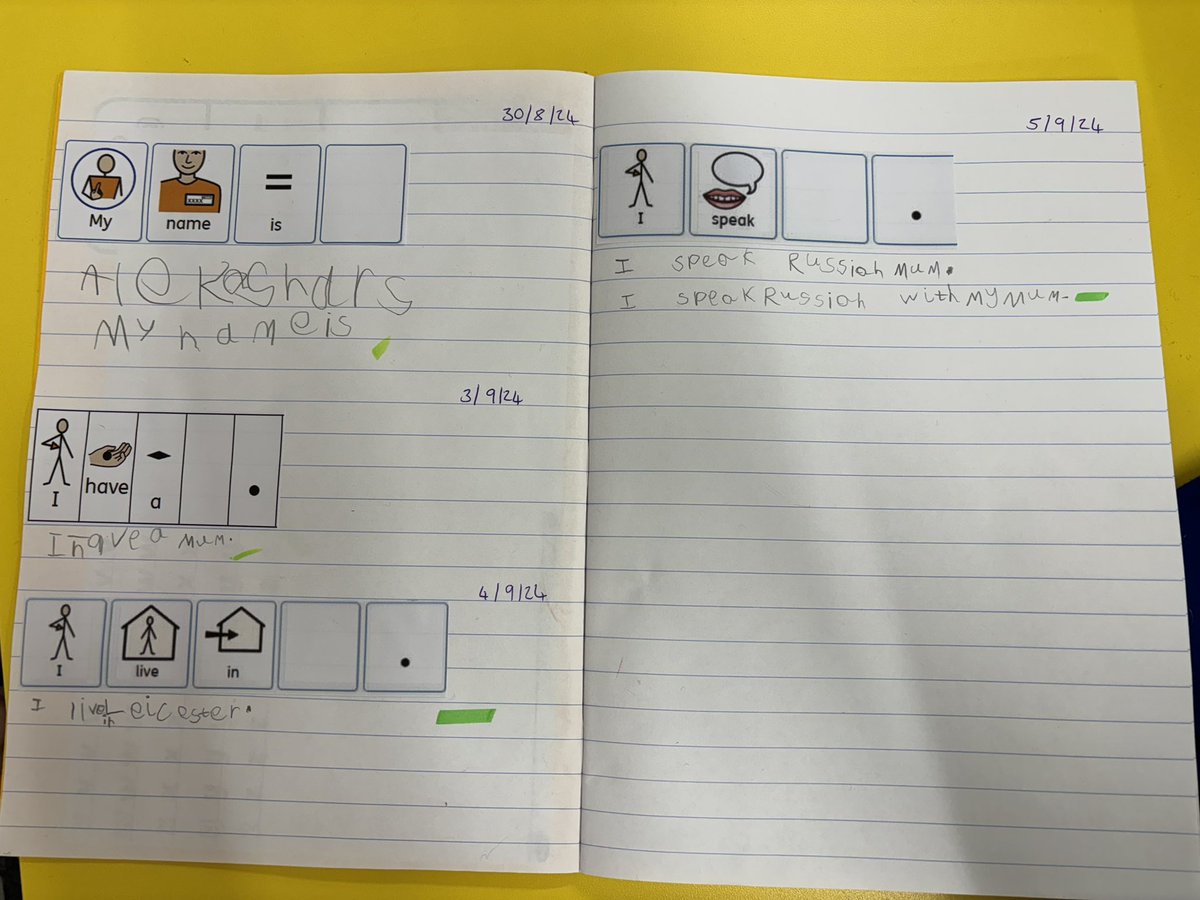 30/8/24
My name = is
Alekashdrs
My name is
3/9/24
I have a .
I have a mum.
4/9/24
I live in .
I live in Leicester.
5/9/24
I speak .
I speak Russian mum.
I speak Russian with my mum.